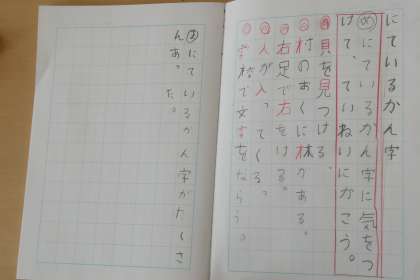 にているかん字
めにているかん字に気をつ
けて、ていねいにかこう。
貝を見つける。
村のおくに林がある。
右足で石をける。
人が入ってくる。
学校で文字をならう。
にているかん字がたくさ
んあった。